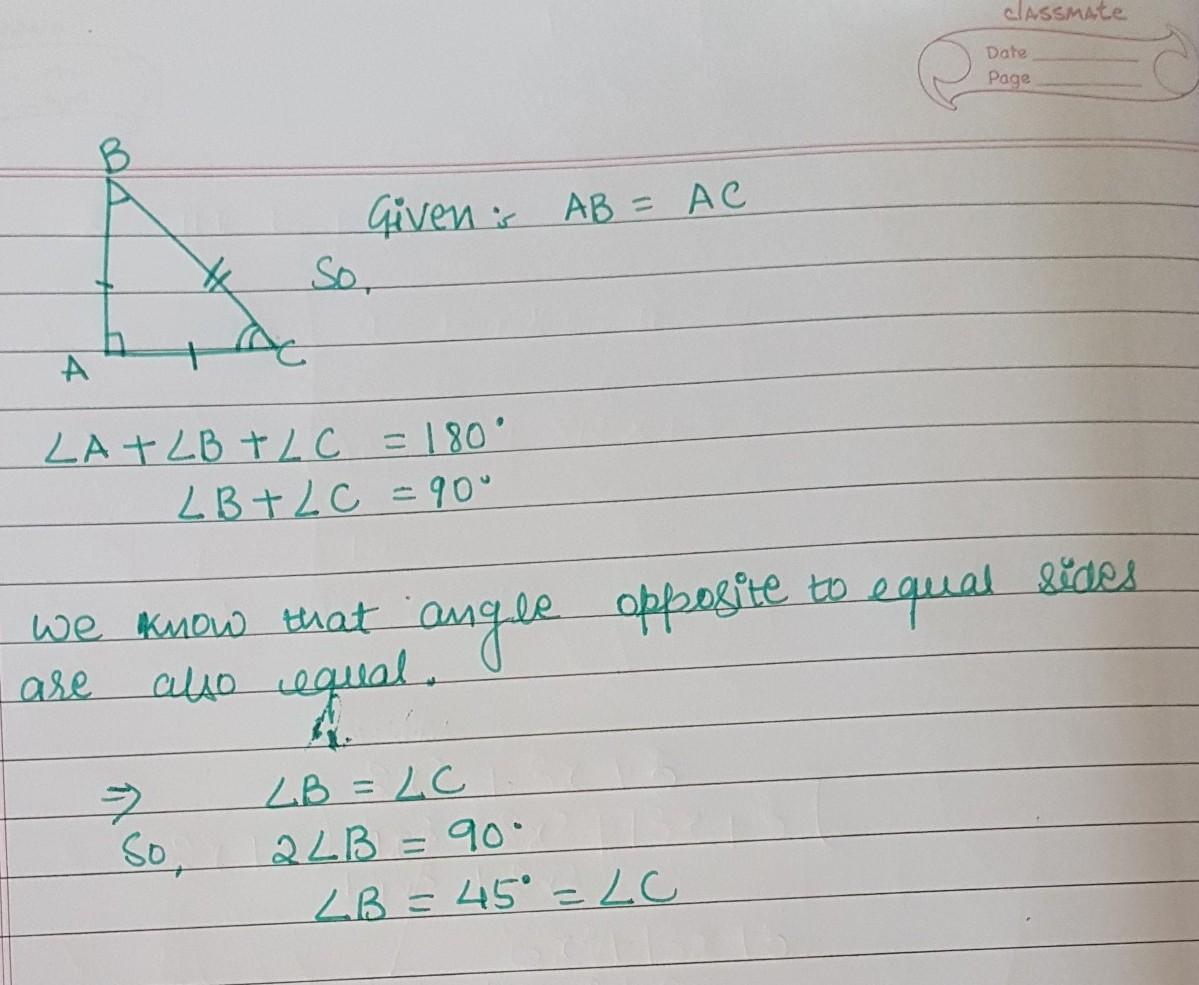 classmate
Date
Page
B
Given :- AB = AC
So,
A
C
∠A + ∠B + ∠C = 180°
∠B + ∠C = 90°
we know that angle opposite to equal sides
are also equal.
⇒ ∠B = ∠C
So, 2∠B = 90°
∠B = 45° = ∠C